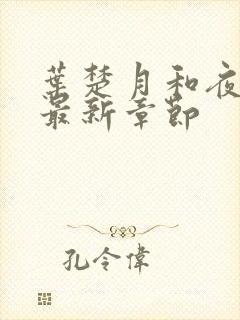 葉楚月和夜
最新章節
孔令偉